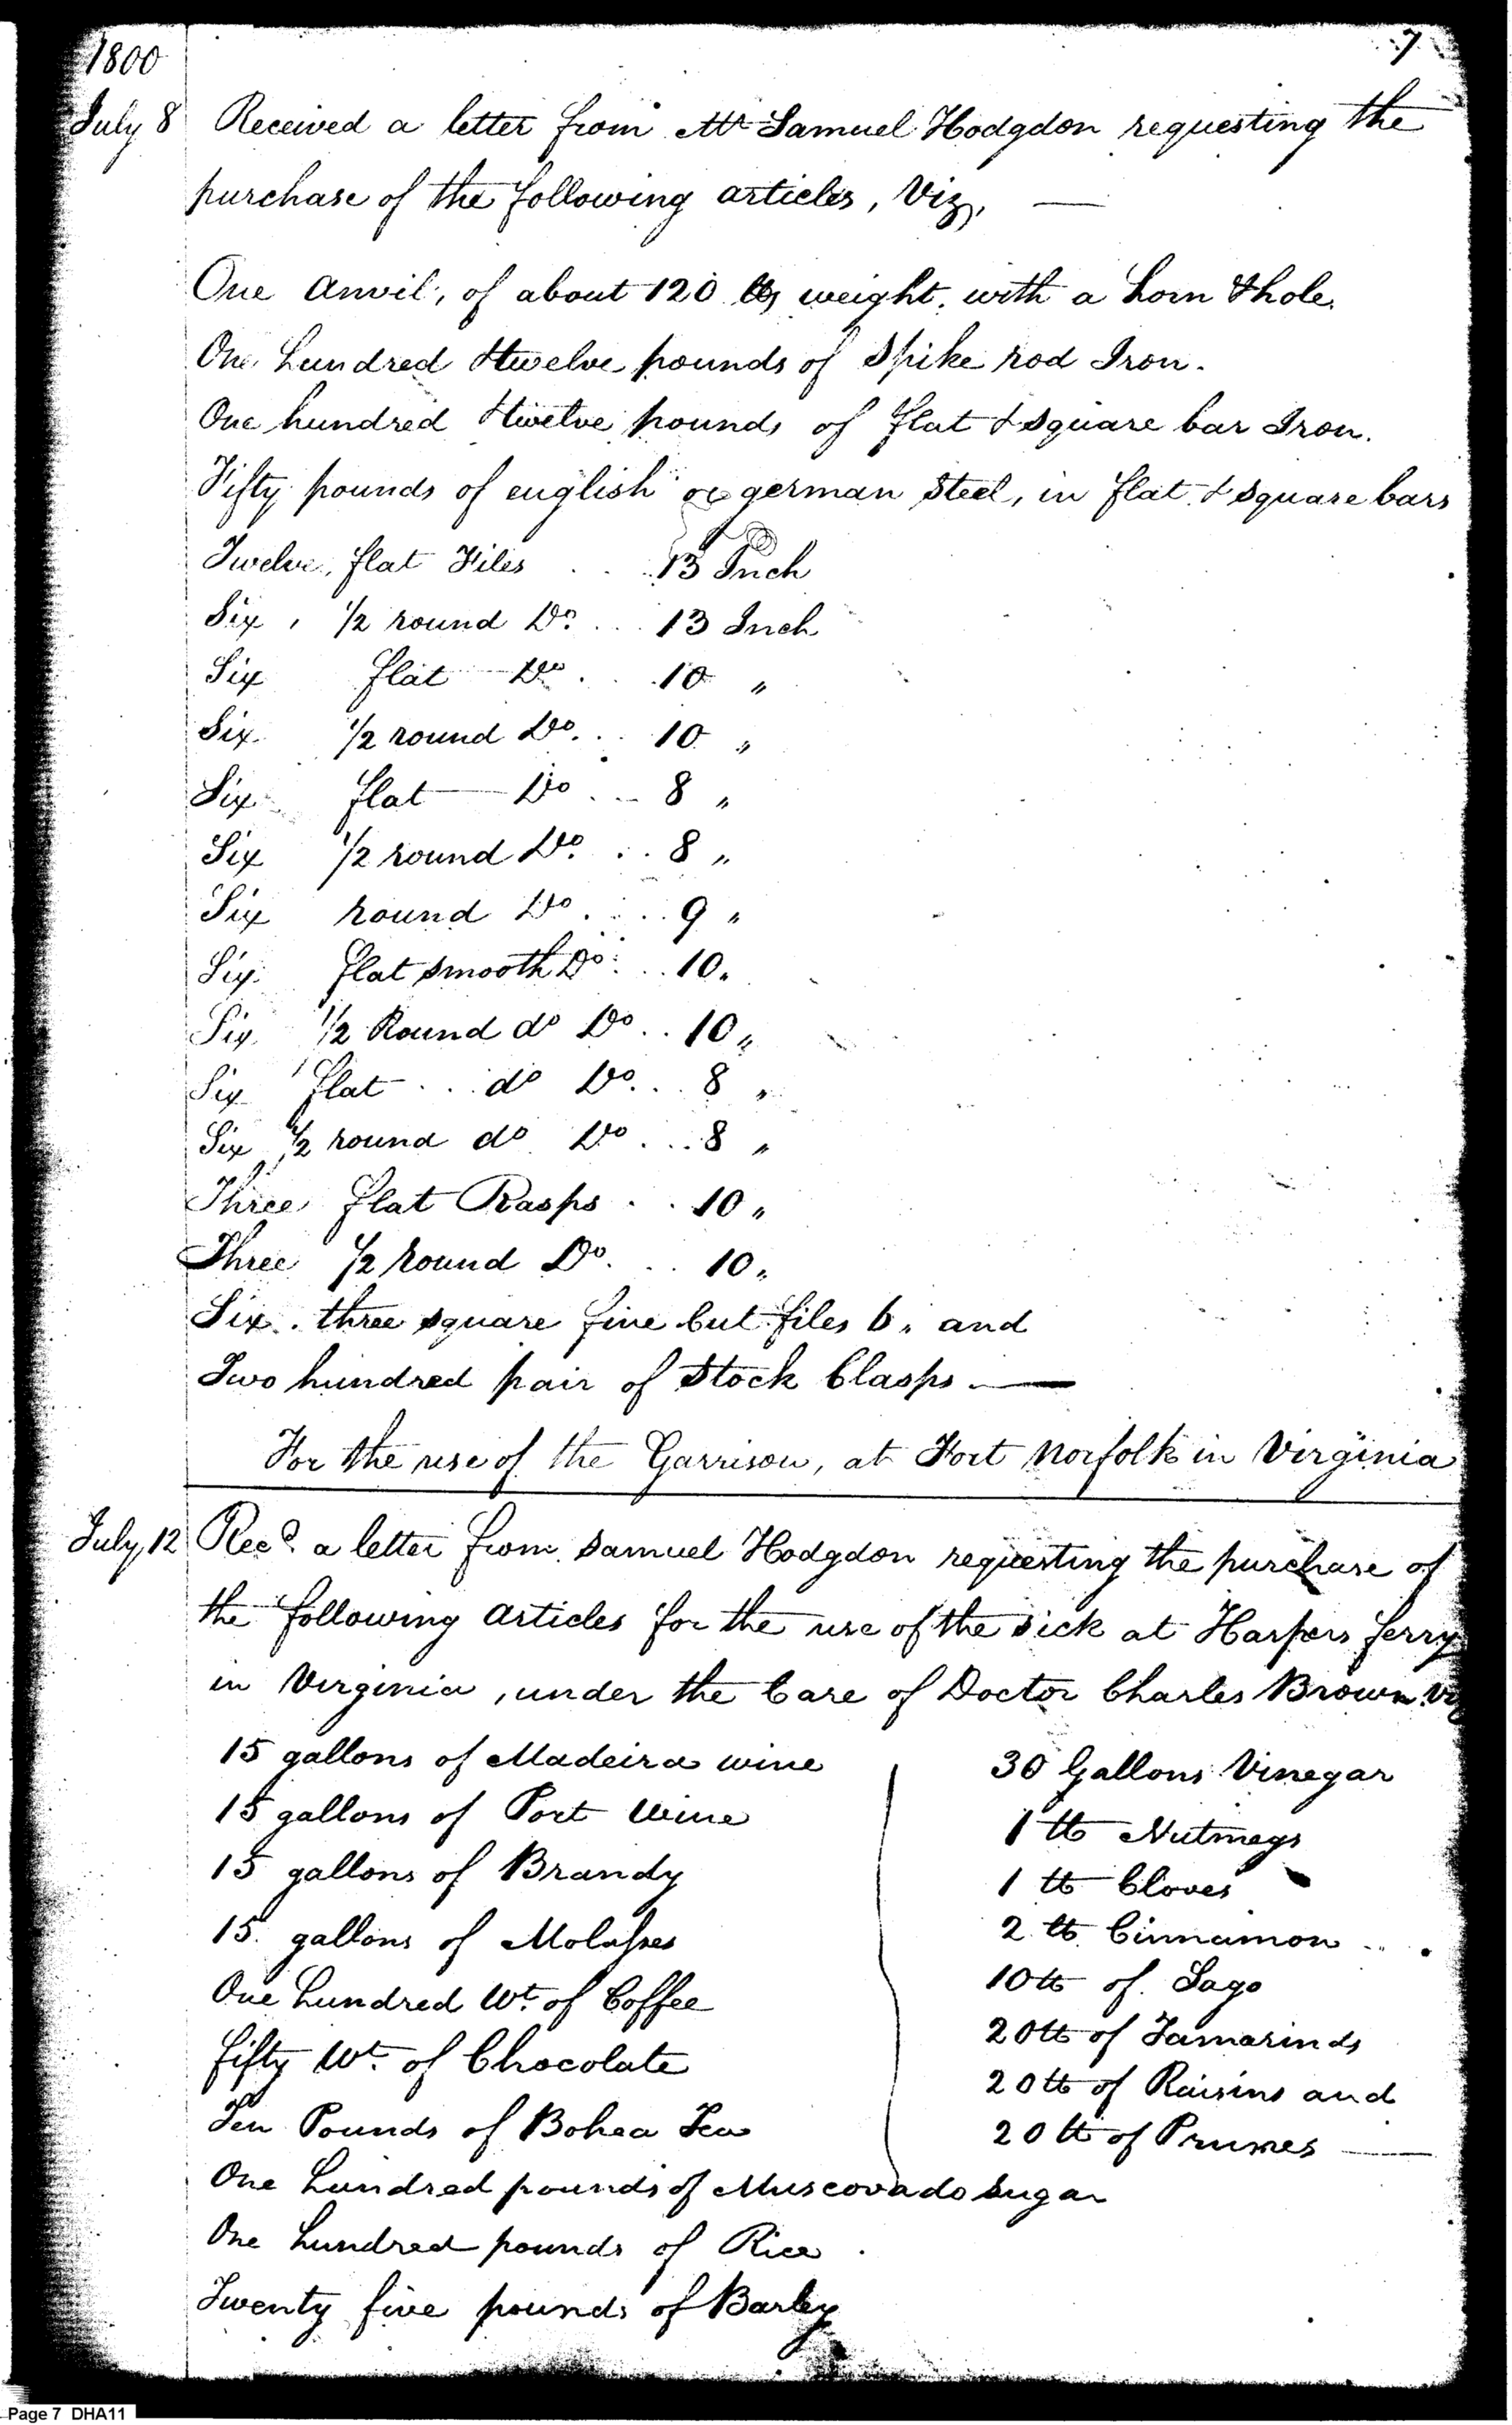 1800
7
July 8 Received a letter from Mr Samuel Hodgdon requesting the
purchase of the following articles, Viz,
One Anvil, of about 120 lbs weight, with a horn & hole.
One hundred & twelve pounds of Spike rod Iron.
One hundred & twelve pounds of flat & square bar Iron.
Fifty pounds of english or german Steel, in flat & square bars
Twelve, flat Files . . . 13 Inch
Six, 1/2 round Do. . . . 13 Inch
Six flat Do . . . 10 "
Six 1/2 round Do. . . 10 "
Six flat — Do . . . 8 "
Six 1/2 round Do. . . 8 "
Six round Do . . . . 9 "
Six flat smooth Do . . . 10 "
Six 1/2 Round do Do . . 10 "
Six flat . . . do Do . . . 8 "
Six 1/2 round do Do . . . 8 "
Three flat Rasps . . 10 "
Three 1/2 round Do. . . 10 "
Six three square fine Cut files 6 " and
Two hundred pair of Stock Clasps —
For the use of the Garrison, at Fort Norfolk in Virginia
July, 12 Recd. a letter from Samuel Hodgdon requesting the purchase of
the following articles for the use of the sick at Harpers ferry
in Virginia, under the Care of Doctor Charles Brown Viz
15 gallons of Madeira wine
15 gallons of Port Wine
15 gallons of Brandy
15 gallons of Molasses
One hundred Wt. of Coffee
fifty Wt. of Chocolate
Ten Pounds of Bohea Tea
One hundred pounds of Muscovado Sugar
One hundred pounds of Rice
Twenty five pounds of Barley
30 Gallons Vinegar
1 lb Nutmegs
1 lb Cloves
2 lb Cinnamon
10 lb of Sago
20 lb of Tamarinds
20 lb of Raisins and
20 lb of Prunes —
Page 7 DHA11